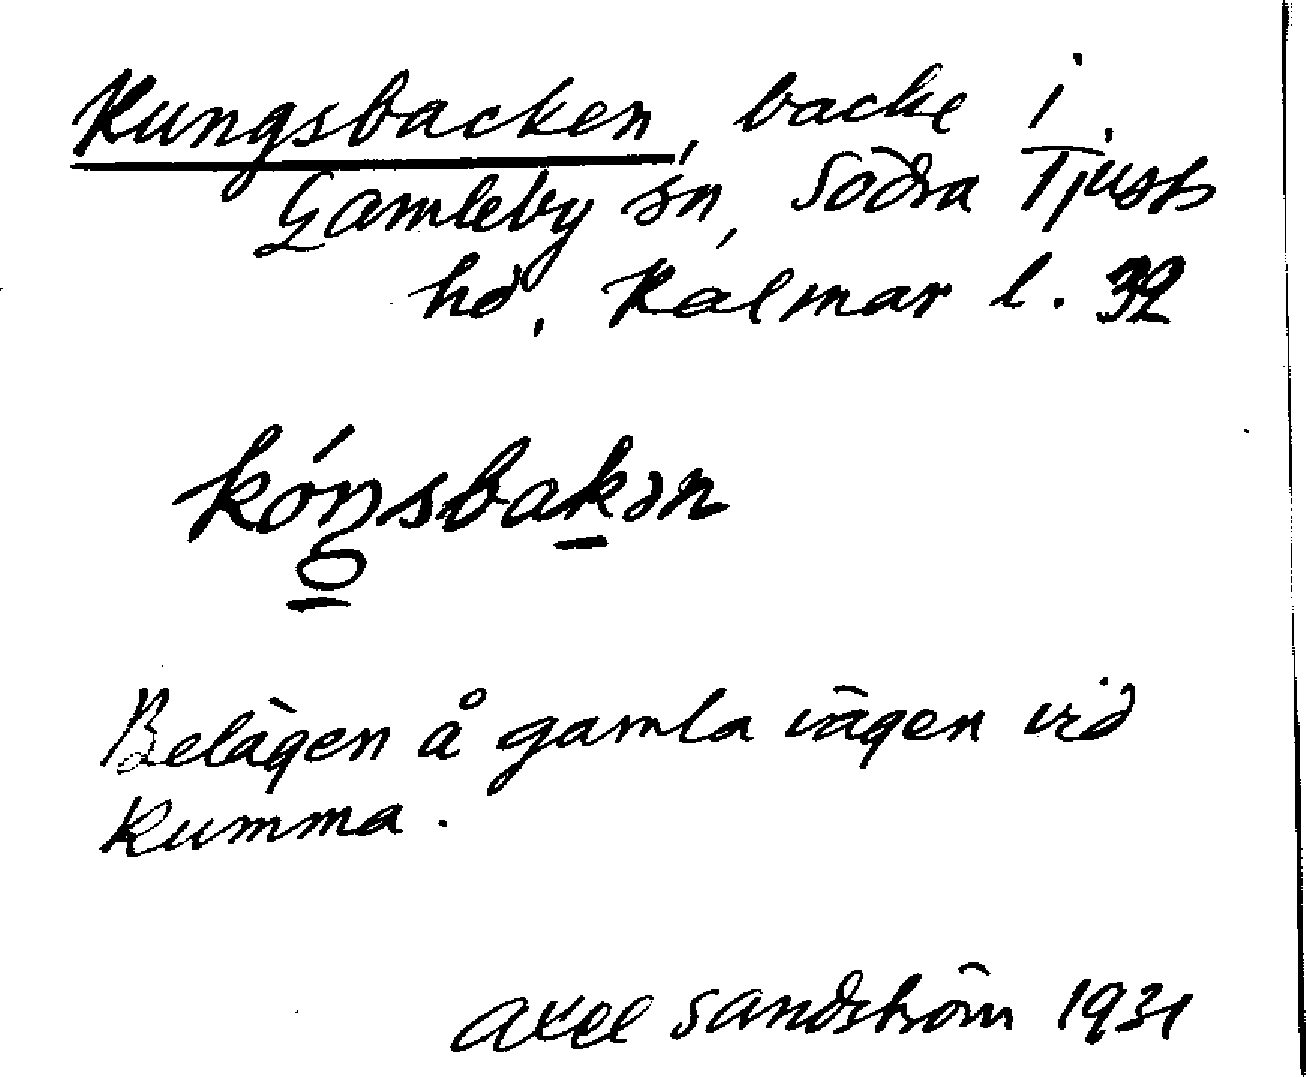 Kungsbacken, backe i
Gamleby sn, Södra Tjusts
hd, Kalmar l. 32
kóŋsbakən
Belägen å gamla vägen vid
Kumma.
Axel Sandström 1931